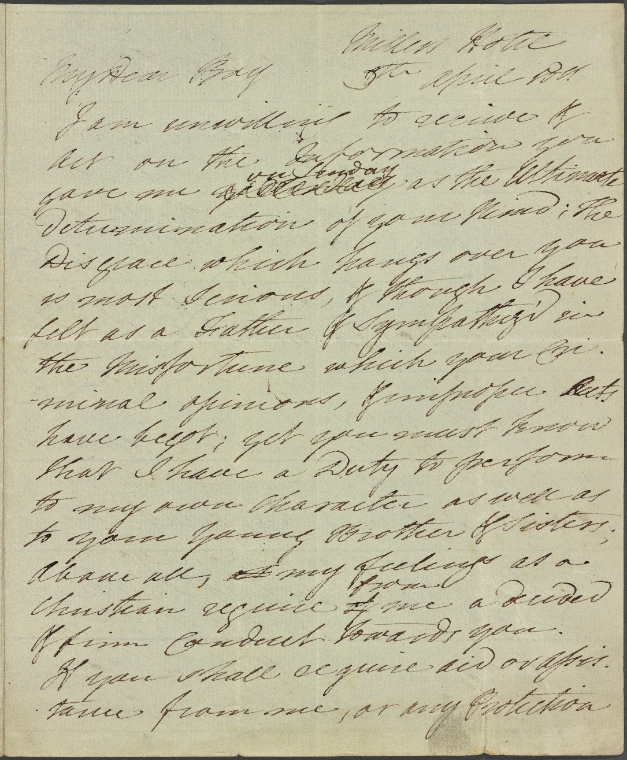 Millers Hotel
My Dear Boy 5th April 1811
I am unwilling to receive &
act on the Information you
on Sunday
gave me yesterday as the Ultimate
determination of your Mind; The
Disgrace which hangs over you
is most Serious, & though I have
felt as a Father & sympathiz'd in
the Misfortune which your Cri-
minal opinions, & improper Acts
have begot; yet you must know
that I have a Duty to perform
to my own Character as well as
to your young Brother & Sisters;
Above all, my feelings as a
from
Christian require of me a decided
& firm conduct towards you.
If you shall require aid or assis-
tance from me, or any Protection